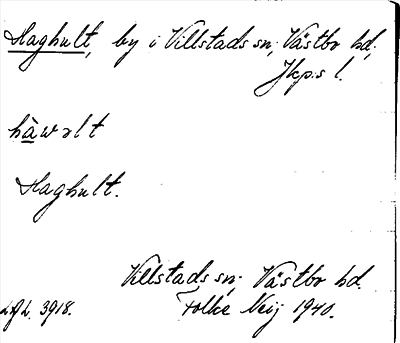 Haghult, by i Villstads sn; Västbo hd;
Jkp:s l.
hàwəlt
Haghult.
Villstads sn; Västbo hd.
Folke Neij 1940.
3918.